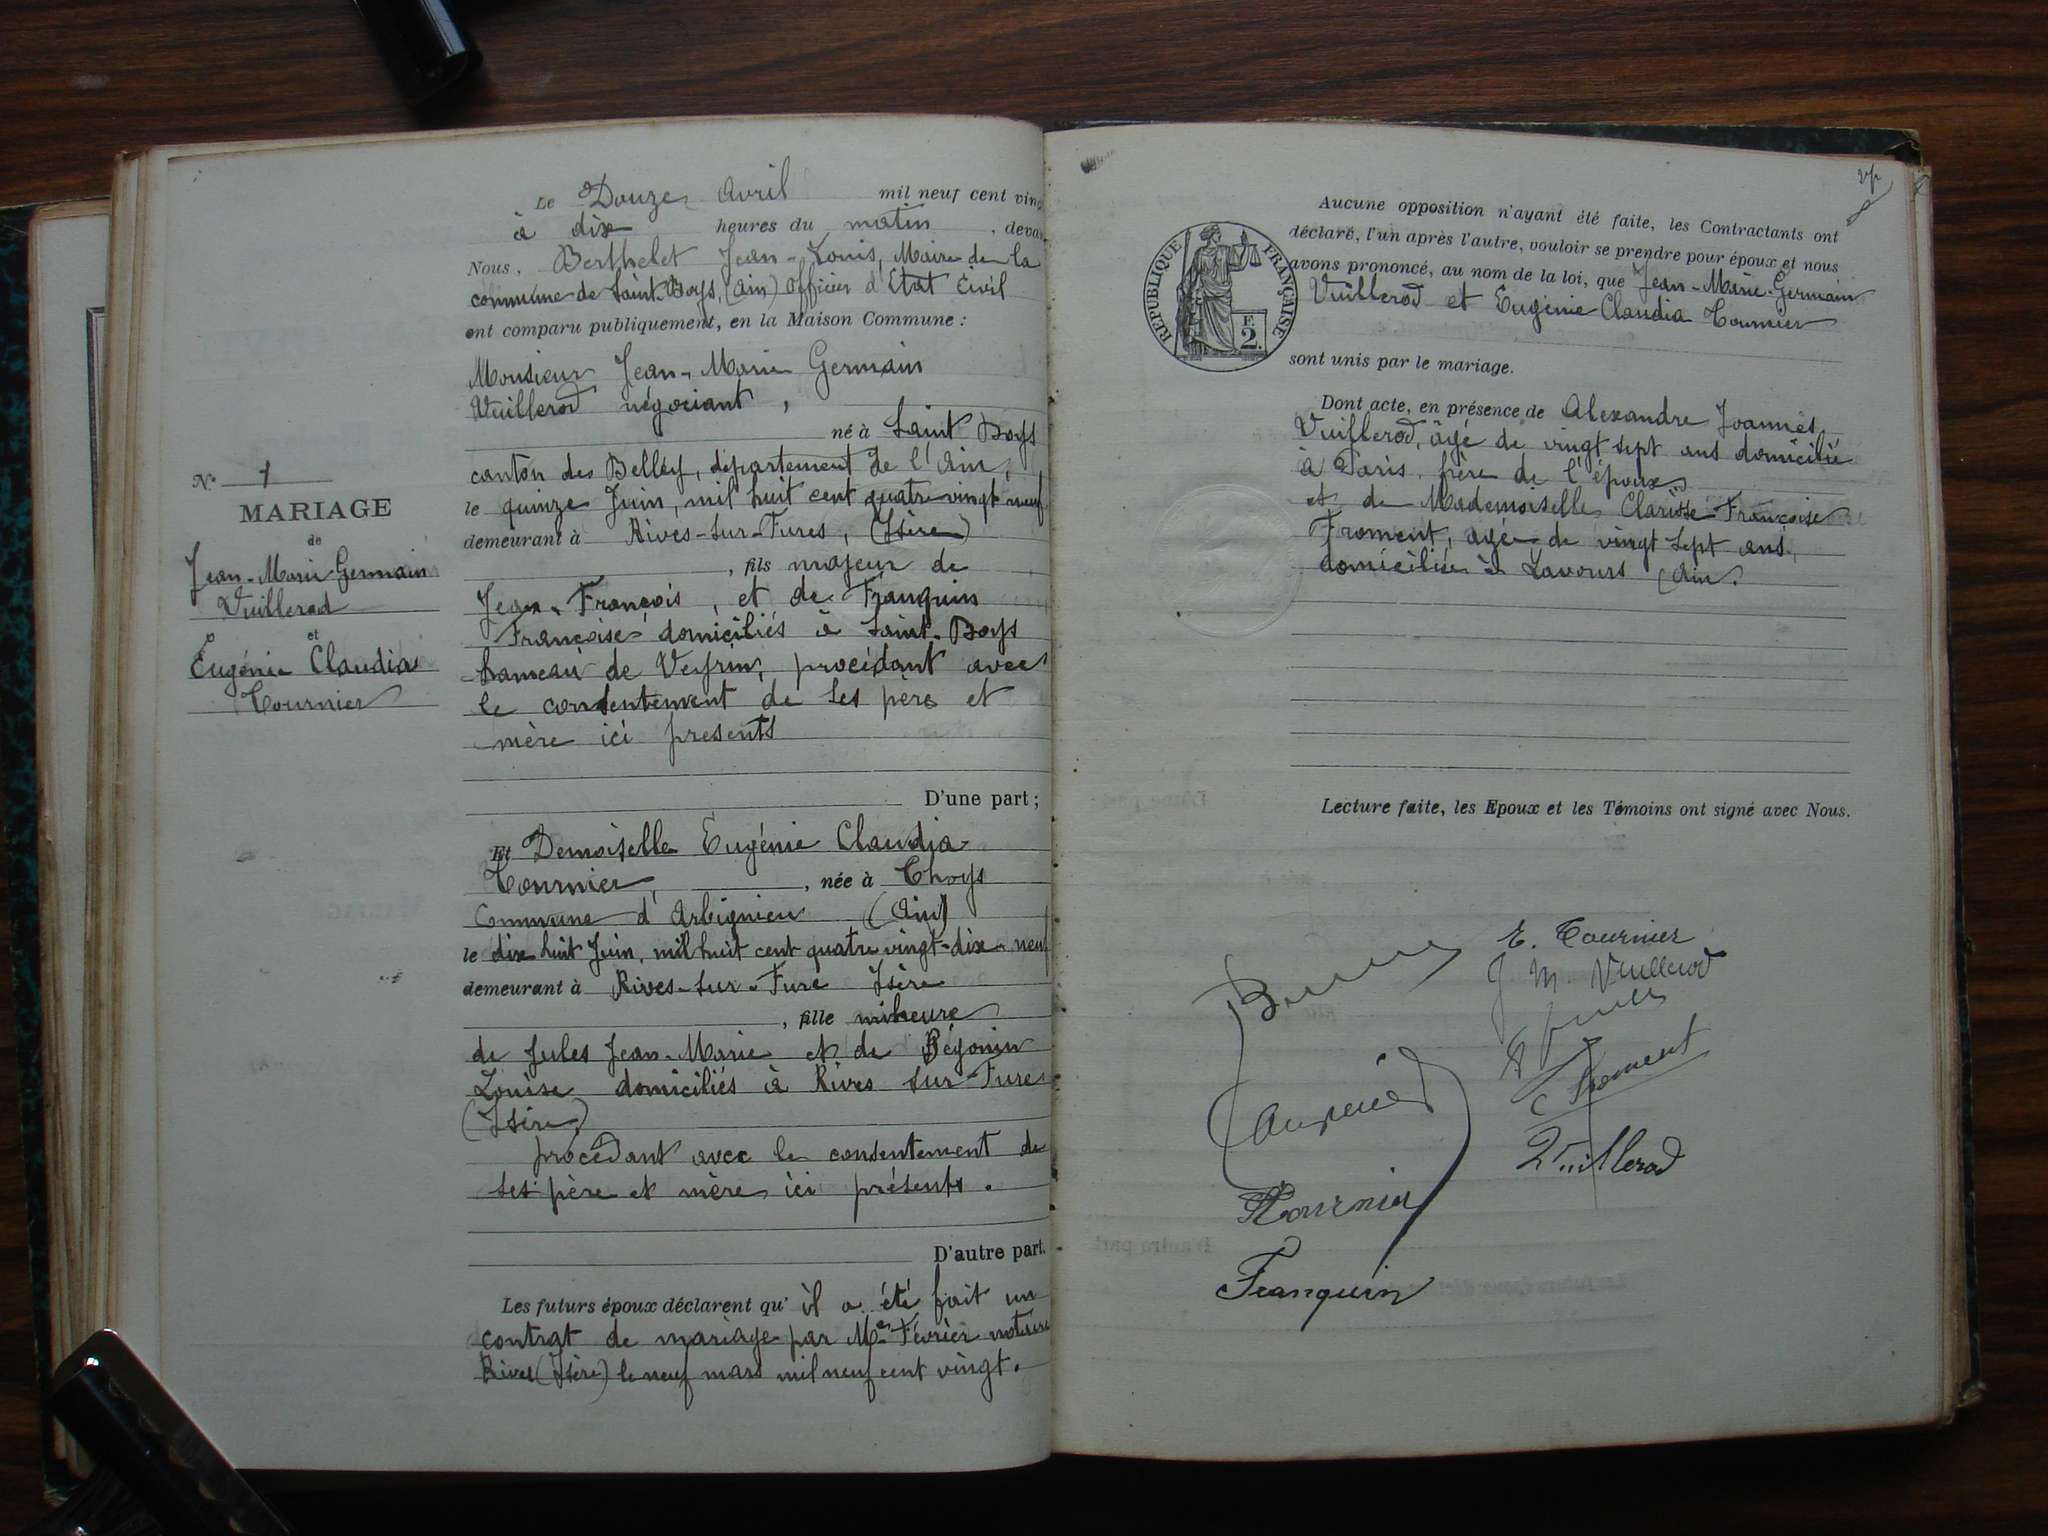 Le Douze Avril mil neuf cent vin
à dix heures du matin, deva
Nous, Berthelet Jean-Louis, Maire de la
commune de Saint-Boys, (Ain) Officier d'Etat Civil
ont comparu publiquement, en la Maison Commune :
Monsieur Jean-Marie Germain
Vuillerod négociant,
né à Saint Boys
canton de Belley, département de l'Ain,
le quinze Juin, mil huit cent quatre vingt neuf
demeurant à Rives-sur-Fures, (Isère)
, fils majeur de
Jean-François, et de Franquin
Françoise domiciliés à Saint-Boys
hameau de Veyrin, procédant avec
le consentement de ses père et
mère ici presents
D'une part ;
Et Demoiselle Eugénie Claudia
Tournier, , née à Thoys
Commune d'Arbignieu (Ain)
le dix huit Juin, mil huit cent quatre vingt-dix-neuf
demeurant à Rives-sur-Fure Isère
, fille mineure
de Jules Jean-Marie et de Bégonin
Louise domiciliés à Rives sur-Fures
(Isère)
procédant avec le consentement de
ses père et mère ici présents.
D'autre part.
Les futurs époux déclarent qu'il a été fait un
contrat de mariage par Me Février notaire
Rives (Isère) le neuf mars mil neuf cent vingt.
N° 1
MARIAGE
de
Jean-Marie Germain
Vuillerod
et
Eugénie Claudia
Tournier
RÉPUBLIQUE FRANÇAISE
F.
2.
Aucune opposition n'ayant été faite, les Contractants ont
déclaré, l'un après l'autre, vouloir se prendre pour époux et nous
avons prononcé, au nom de la loi, que Jean-Marie-Germain
Vuillerod et Eugénie Claudia Tournier
sont unis par le mariage.
Dont acte, en présence de Alexandre Joannès
Vuillerod, âgé de vingt sept ans domicilié
à Paris, frère de l'époux
et de Mademoiselle Clarisse Françoise
Froment, agée de vingt sept ans,
domiciliée à Lavours (Ain.
Lecture faite, les Epoux et les Témoins ont signé avec Nous.
E. Tournier
J M Vuillerod
C Froment
Vuillerod
Tournier
Franquin